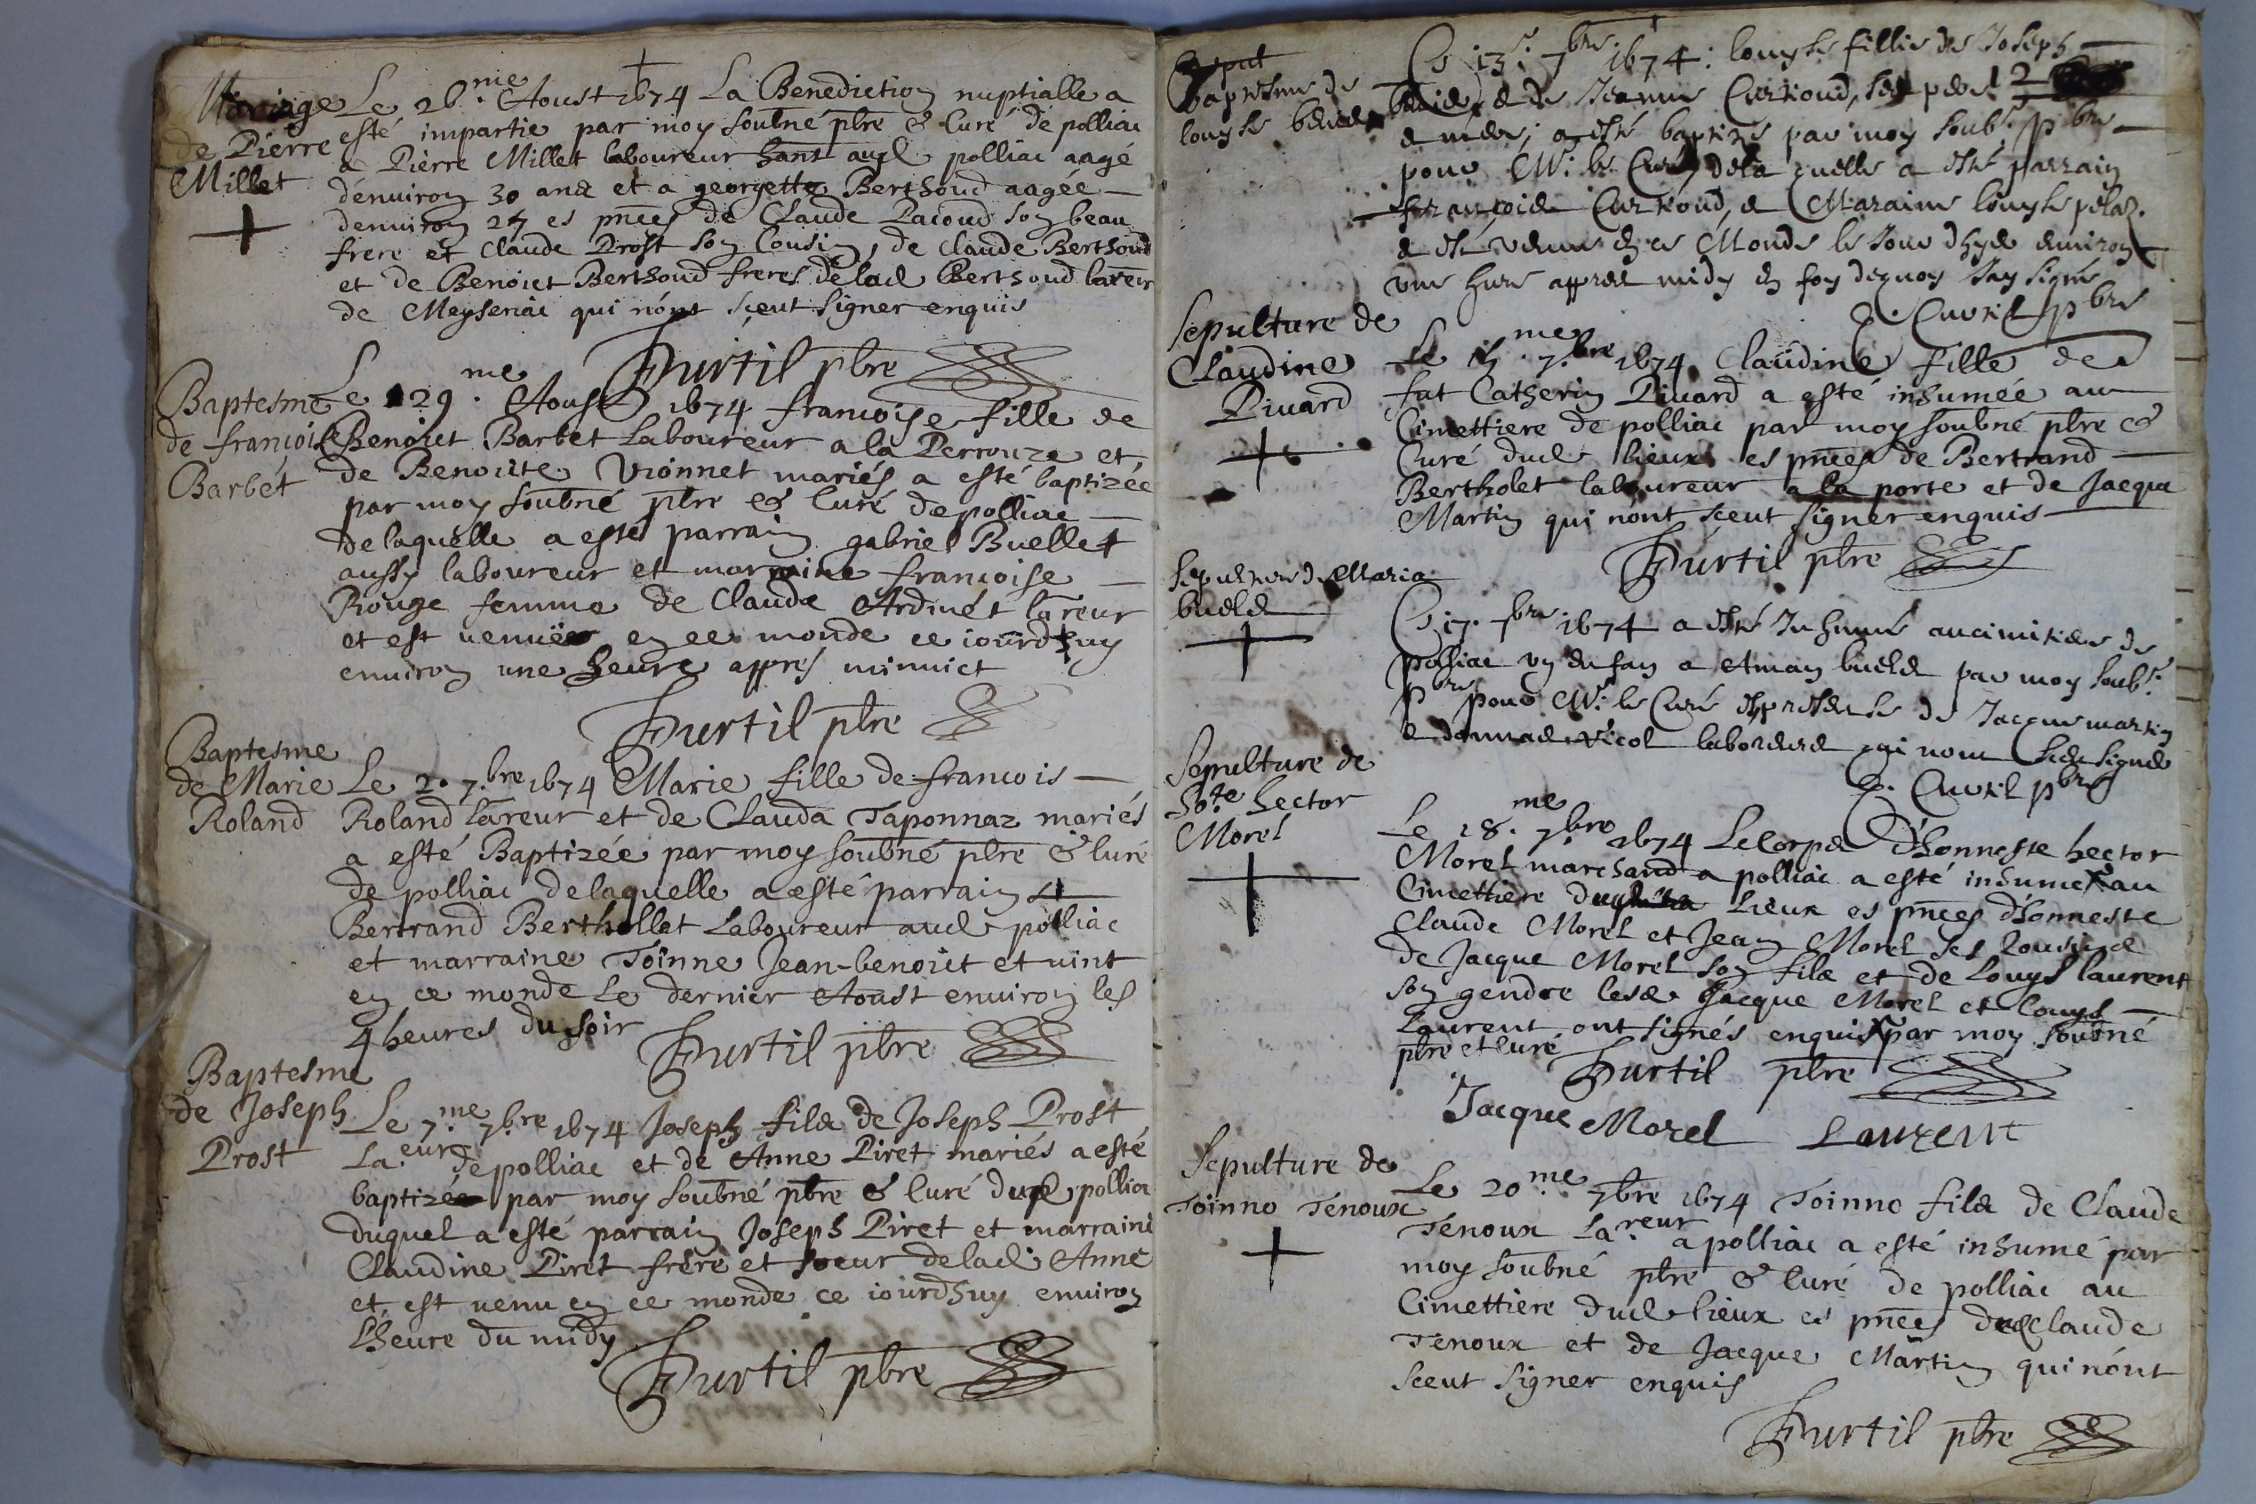 Mariage
de Pierre
Millet
Le 26.me Aoust 1674 La Benediction nuptialle a
esté impartie par moy soubné pbre & Curé de polliac
a Pierre Millet laboureur hant aud polliac aagé
dénuiron 30 ans et a georgette Berthoud aagée
denuiron 25 es pnces de Claude Pacoud son beau
frere et Claude Prost son Cousin, de Claude Berthoud
et de Benoict Berthoud freres de lad Berthoud lareur
de Meyseriac qui nónt sceut signer enquis
Burtil pbre
Baptesme
de francoise
Barbét
Le 29.me Aoust 1674 francoise fille de
Benoict Barbet Laboureur a la Perrouze et
de Benoicte Vionnet mariés a esté baptizée
par moy soubné pbre & Curé de polliac
de laquelle a esté parrain gabriel Buellet
aussy laboureur et marraine francoise
Rouge femme de Claude Ardinét lareur
et est uenuë en ce monde ce iourdhuy
enuiron une heure appres minuict
Burtil pbre
Baptesme
de Marie
Roland
Le 2. 7.bre 1674 Marie fille de francois
Roland lareur et de Clauda Taponnaz mariés
a esté Baptizée par moy soubné pbre & Curé
de polliac de laquelle a esté parrain
Bertrand Berthollet Laboureur aud polliac
et marraine Toinne Jean-benoict et uint
en ce monde Le dernier Aoust enuiron les
4 heures du soir
Burtil pbre
Baptesme
de Joseph
Prost
Le 7.me 7.bre 1674 Joseph fils de Joseph Prost
La.eur de polliac et de Anne Piret mariés a esté
baptizé par moy soubné pbre & Curé dud polliac
duquel a esté parrain Joseph Piret et marraine
Claudine Piret frere et soeur de lad Anne
et est uenu en ce monde ce iourdhuy enuiron
Lheure du midy
Burtil pbre
Baptesme de
louyse
Ce 13.e 7bre 1674: louyse fillie de Joseph
et de Jeanne Curtioud, ses pere
et mere, a esté baptize par moy soubs. pbre
pour Mr. le Curé, de la quelle a esté parrain
françois Curtioud, et Maraine louyse pelaz.
et est venue en ce Monde le Jour dhyer enuiron
vne hure appres midy en foy dequoy Jay signé
Curtil pbre
Sepulture de
Claudine
Piuard
Le 15.me 7.bre 1674 Claudine fille de
fut Catherin Piuard a esté inhumée au
Cimettiere de polliac par moy soubné pbre &
Curé dud lieux es pnces de Bertrand
Bertholet laboureur a la porte et de Jacque
Martin qui nónt sceut signer enquis
Burtil pbre
Sepulture de Maria
buelet
Ce 17. 7bre 1674 a esté Inhumé au cimitiere de
polliac vn enfan a buelet par moy soubs.
pbre pour Mr. le Curé de Jacque martin
et nicol qui nont signer
Curtil pbre
Sepulture de
hote hector
Morel
Le 18.me 7bre 1674 Le Corps d'honneste hector
Morel marchand a polliac a esté inhumé au
Cimettiere dud Lieux es pnces d'honneste
Claude Morel et Jean Morel ses Cousins
de Jacque Morel son fils et de Louys laurent
son gendre lesd Jacque Morel et Louys
Laurent ont signés enquis par moy soubné
pbre et Curé
Burtil pbre
Jacque Morel Laurent
Sepulture de
Toinno Ténoux
Le 20.me 7bre 1674 Toinno fils de Claude
Ténoux La.reur a polliac a esté inhumé par
moy soubné pbre & Curé de polliac au
Cimettiere dud lieux es pnces dud Claude
Ténoux et de Jacque Martin qui nónt
sceut signer enquis
Burtil pbre